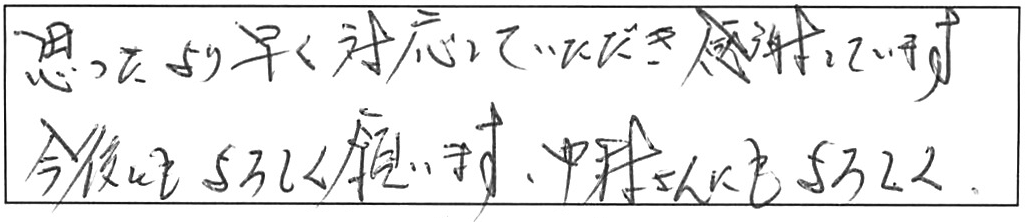 思ったより早く対応していただき感謝しています
今後ともよろしく願います、中村さんにもよろしく.